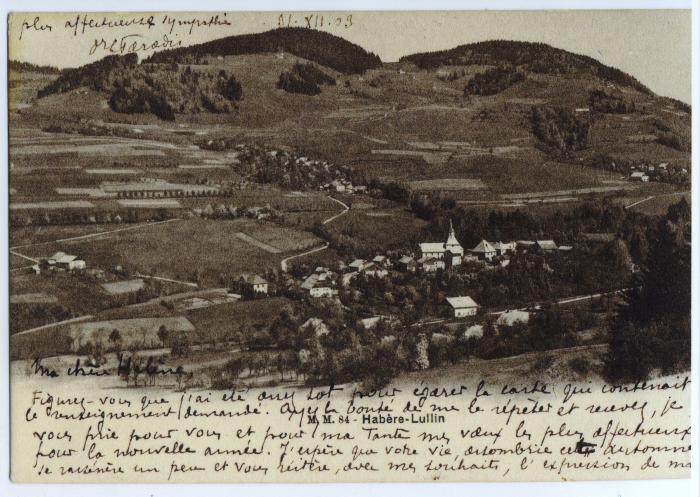 plus affectueuse sympathie
31. XII. 03
Ma chère Hélène
Figurez-vous que j'ai été assez sot pour égarer la carte qui contenait
le renseignement demandé. Ayez la bonté de me le répéter et recevez, je
M. M. 84 - Habère-Lullin
vous prie pour vous et pour ma Tante mes vœux les plus affectueux
pour la nouvelle année. J'espère que votre vie, assombrie cet automne
se rassérène un peu et vous réitère, avec mes souhaits, l'expression de ma